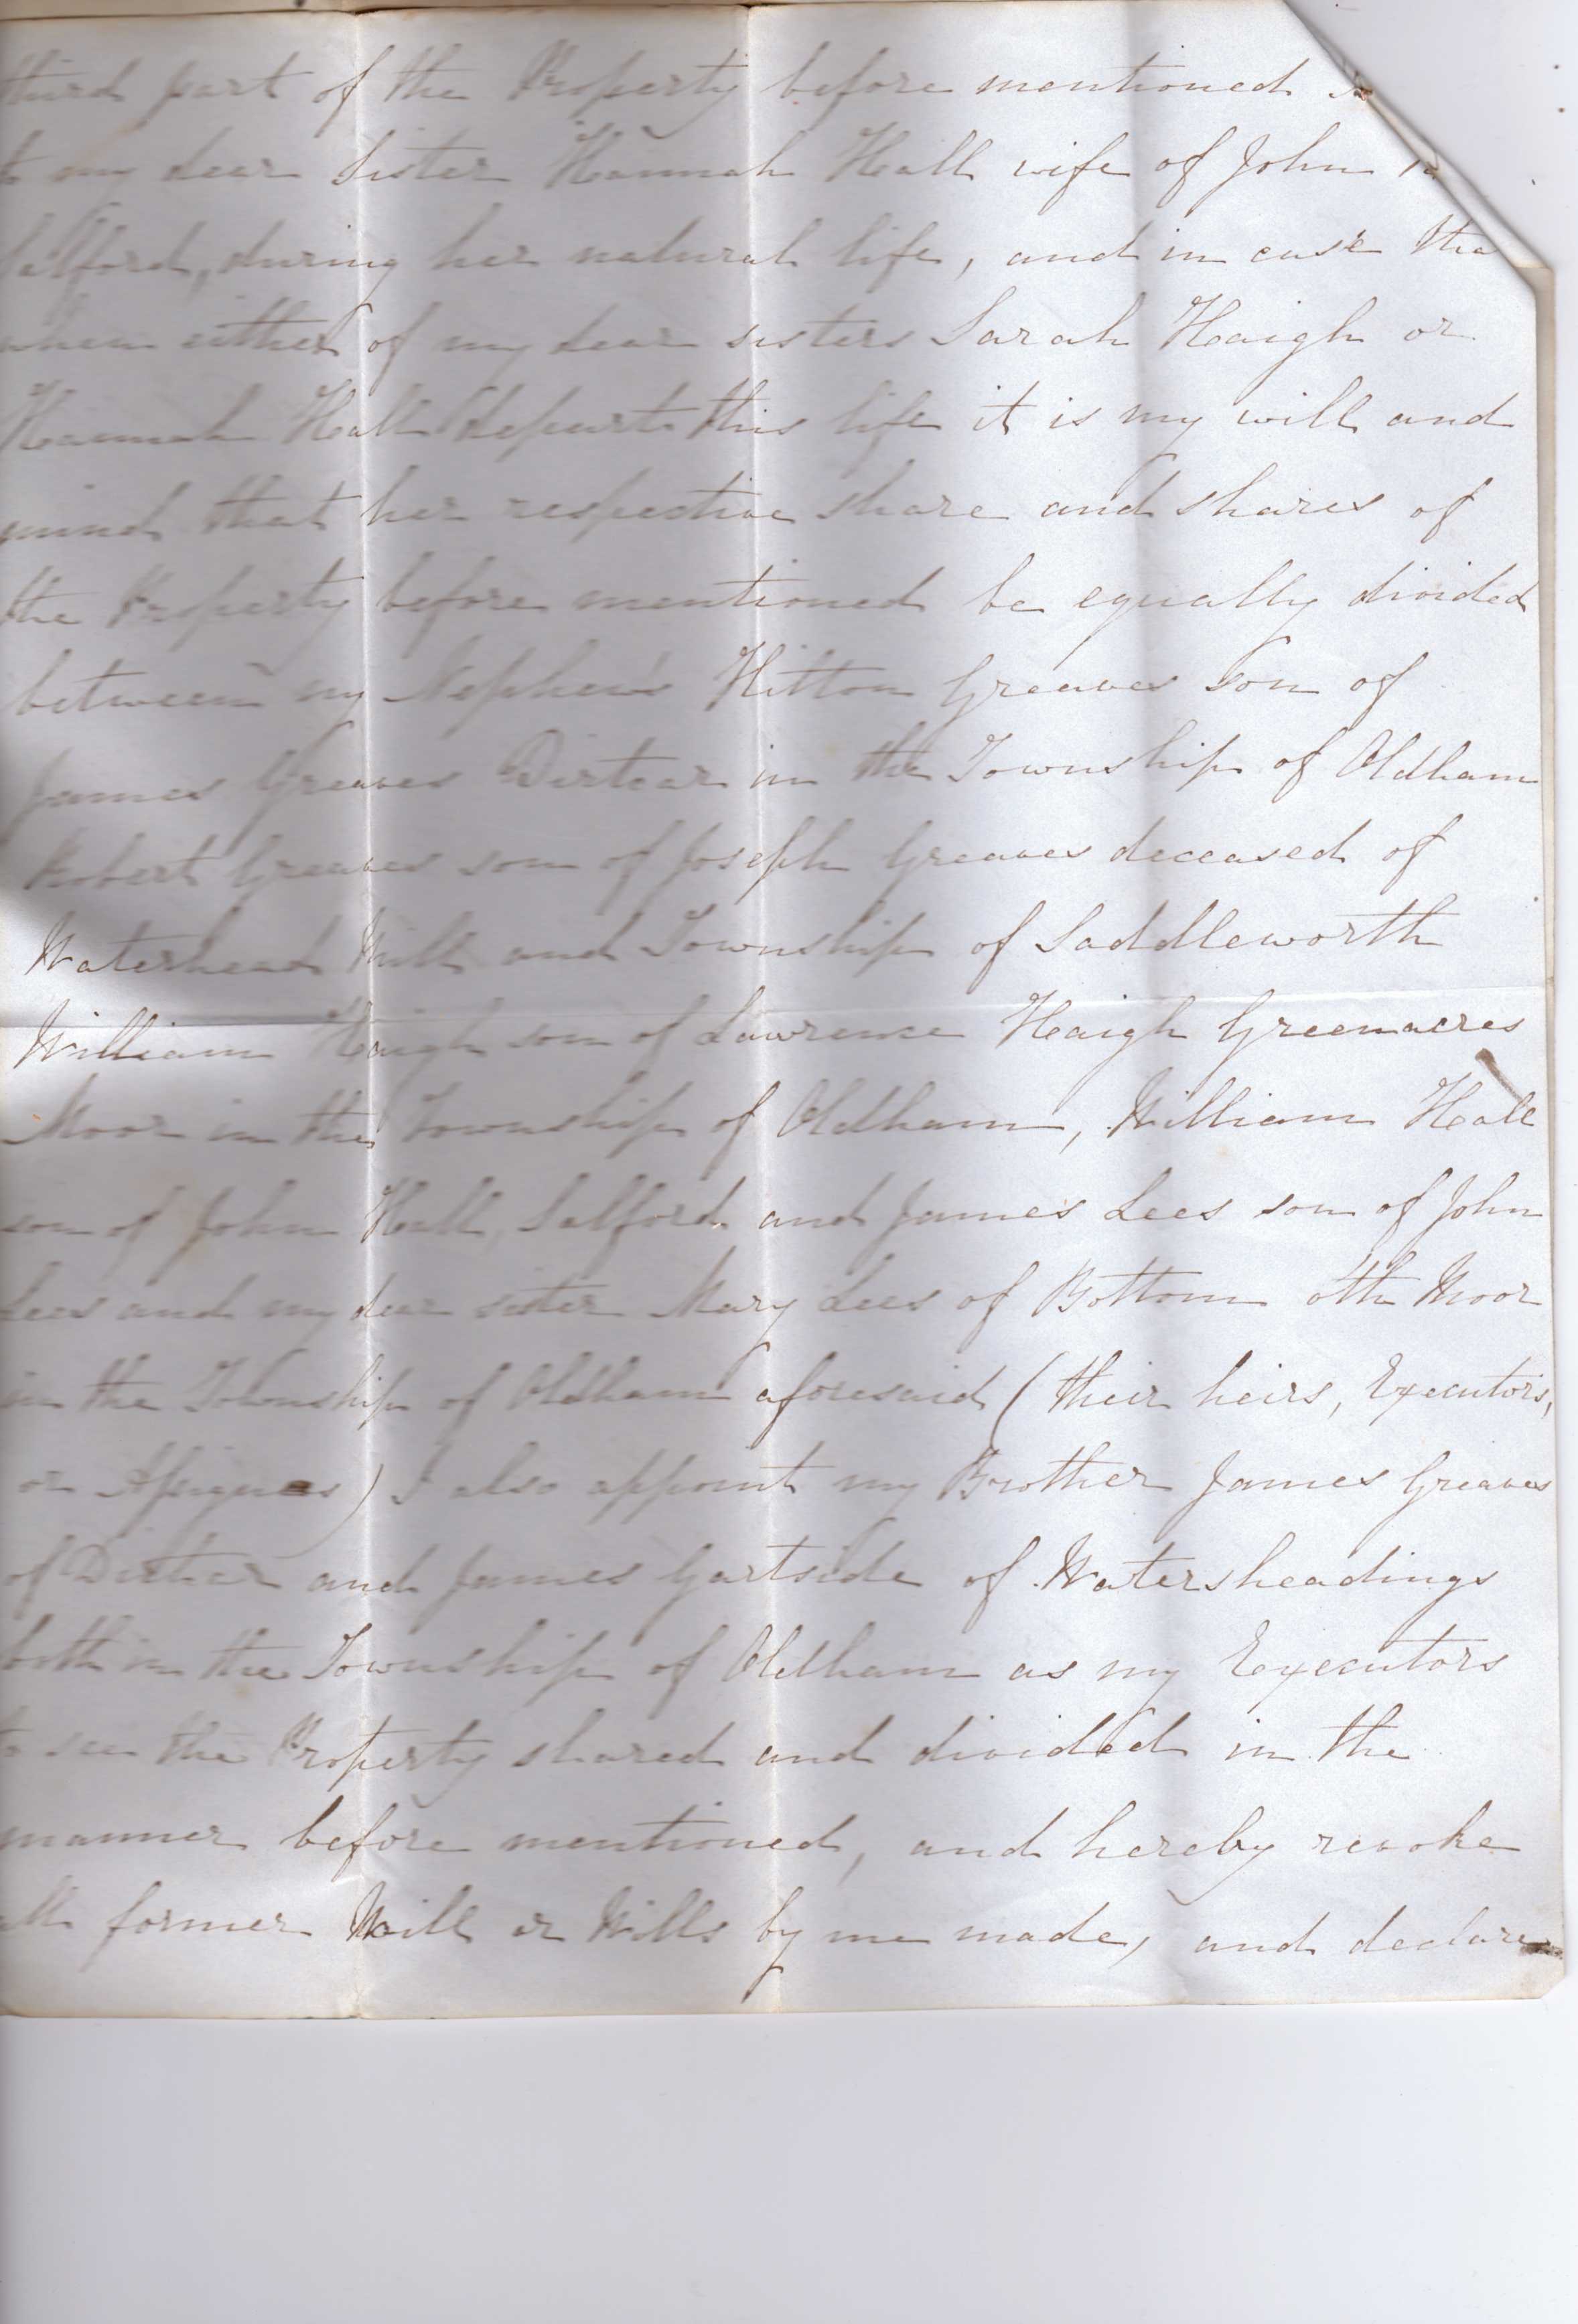 third part of the Property before mentioned
to my dear Sister Hannah Hall wife of John
Salford, during her natural life, and in case
when either of my dear sisters Sarah Haigh or
Hannah Hall depart this life it is my will and
mind that her respective share and shares of
the Property before mentioned be equally divided
between my Nephew's Hilton Greaves Son of
James Greaves Dirtcar in the Township of Oldham
Robert Greaves son of Joseph Greaves deceased of
Waterhead Mill and Township of Saddleworth
William Haigh son of Lawrence Haigh Greenacres
Moor in the Township of Oldham, William Hall
son of John Hall, Salford and James Lees son of John
Lees and my dear sister Mary Lees of Bottom oth Moor
in the Township of Oldham aforesaid (their heirs, Executors,
or Assignees) I also appoint my Brother James Greaves
of Dirtcar and James Gartside of Watersheadings
both in the Township of Oldham as my Executors
to see the Property shared and divided in the
manner before mentioned, and hereby revoke
all former Will or Wills by me made, and declare